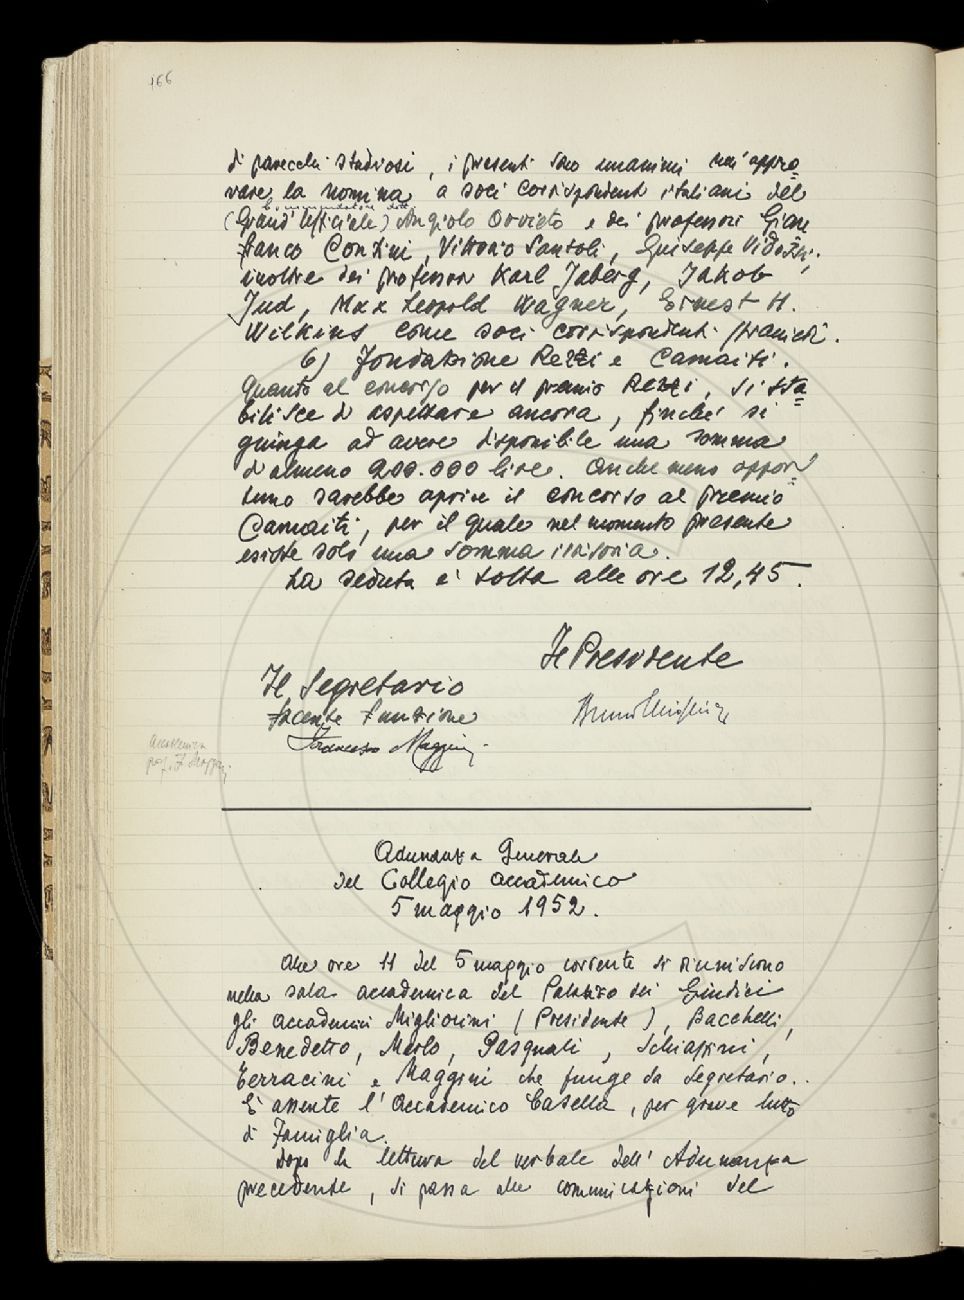 166
di parecchi studiosi, i presenti sono unanimi nell'appro=
vare la nomina a soci corrispondenti italiani del
Commendatore dott.
(Grand'Ufficiale) Angiolo Orvieto e dei professori Gian
franco Contini, Vittorio Santoli, Giuseppe Vidossi;
inoltre dei professori Karl Jaberg, Jakob
Jud, Max Leopold Wagner, Ernest H.
Wilkins come soci corrispondenti stranieri.
6) Fondazione Rezzi e Camaiti.
Quanto al concorso per il premio Rezzi, si sta=
bilisce di aspettare ancora, finché si
giunga ad avere disponibile una somma
d'almeno 200.000 lire. Anche meno oppor=
tuno sarebbe aprire il concorso al premio
Camaiti, per il quale nel momento presente
esiste solo una somma irrisoria.
La seduta è tolta alle ore 12,45.
Il Presidente
Il Segretario
facente funzione
Bruno Migliorini
Francesco Maggini
Accademico
prof. F. Maggini
Adunanza Generale
del Collegio accademico
5 maggio 1952.
Alle ore 11 del 5 maggio corrente si riuniscono
nella sala accademica del Palazzo dei Giudici
gli accademici Migliorini (Presidente), Bacchelli,
Benedetto, Merlo, Pasquali, Schiaffini,
Terracini e Maggini che funge da segretario.
È assente l'Accademico Casella, per grave lutto
di famiglia.
Dopo la lettura del verbale dell'Adunanza
precedente, si passa alle comunicazioni del